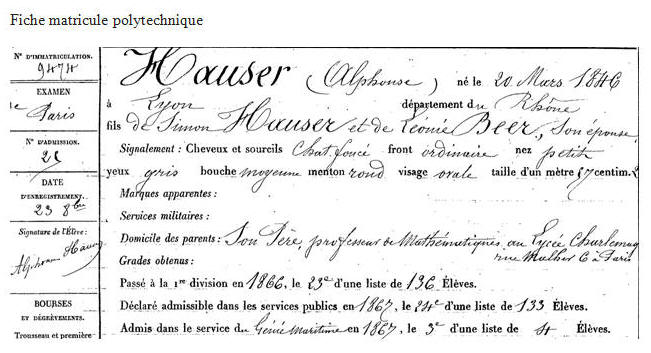 Fiche matricule polytechnique
N° D'IMMATRICULATION.
9474
EXAMEN
Paris
N° D'ADMISSION.
DATE
D'ENREGISTREMENT.
23 8bre
Signature de l'Élève :
Alphonse Hauser
BOURSES
ET DÉGRÈVEMENTS.
Trousseau et première
Hauser (Alphonse) né le 20 Mars 1846
à Lyon département du Rhône
fils de Simon Hauser et de Léonie Beer, son épouse
Signalement : Cheveux et sourcils Chat. foncé front ordinaire nez petit
yeux gris bouche moyenne menton rond visage ovale taille d'un mètre centim.
Marques apparentes :
Services militaires :
Domicile des parents : Son Père, professeur de Mathématiques au Lycée Charlemag
Grades obtenus : rue Malher 6 à Paris
Passé à la 1re division en 1866, le 23e d'une liste de 136 Élèves.
Déclaré admissible dans les services publics en 1867, le 24e d'une liste de 133 Élèves.
Admis dans le service du Génie Maritime en 1867, le 3e d'une liste de 4 Élèves.